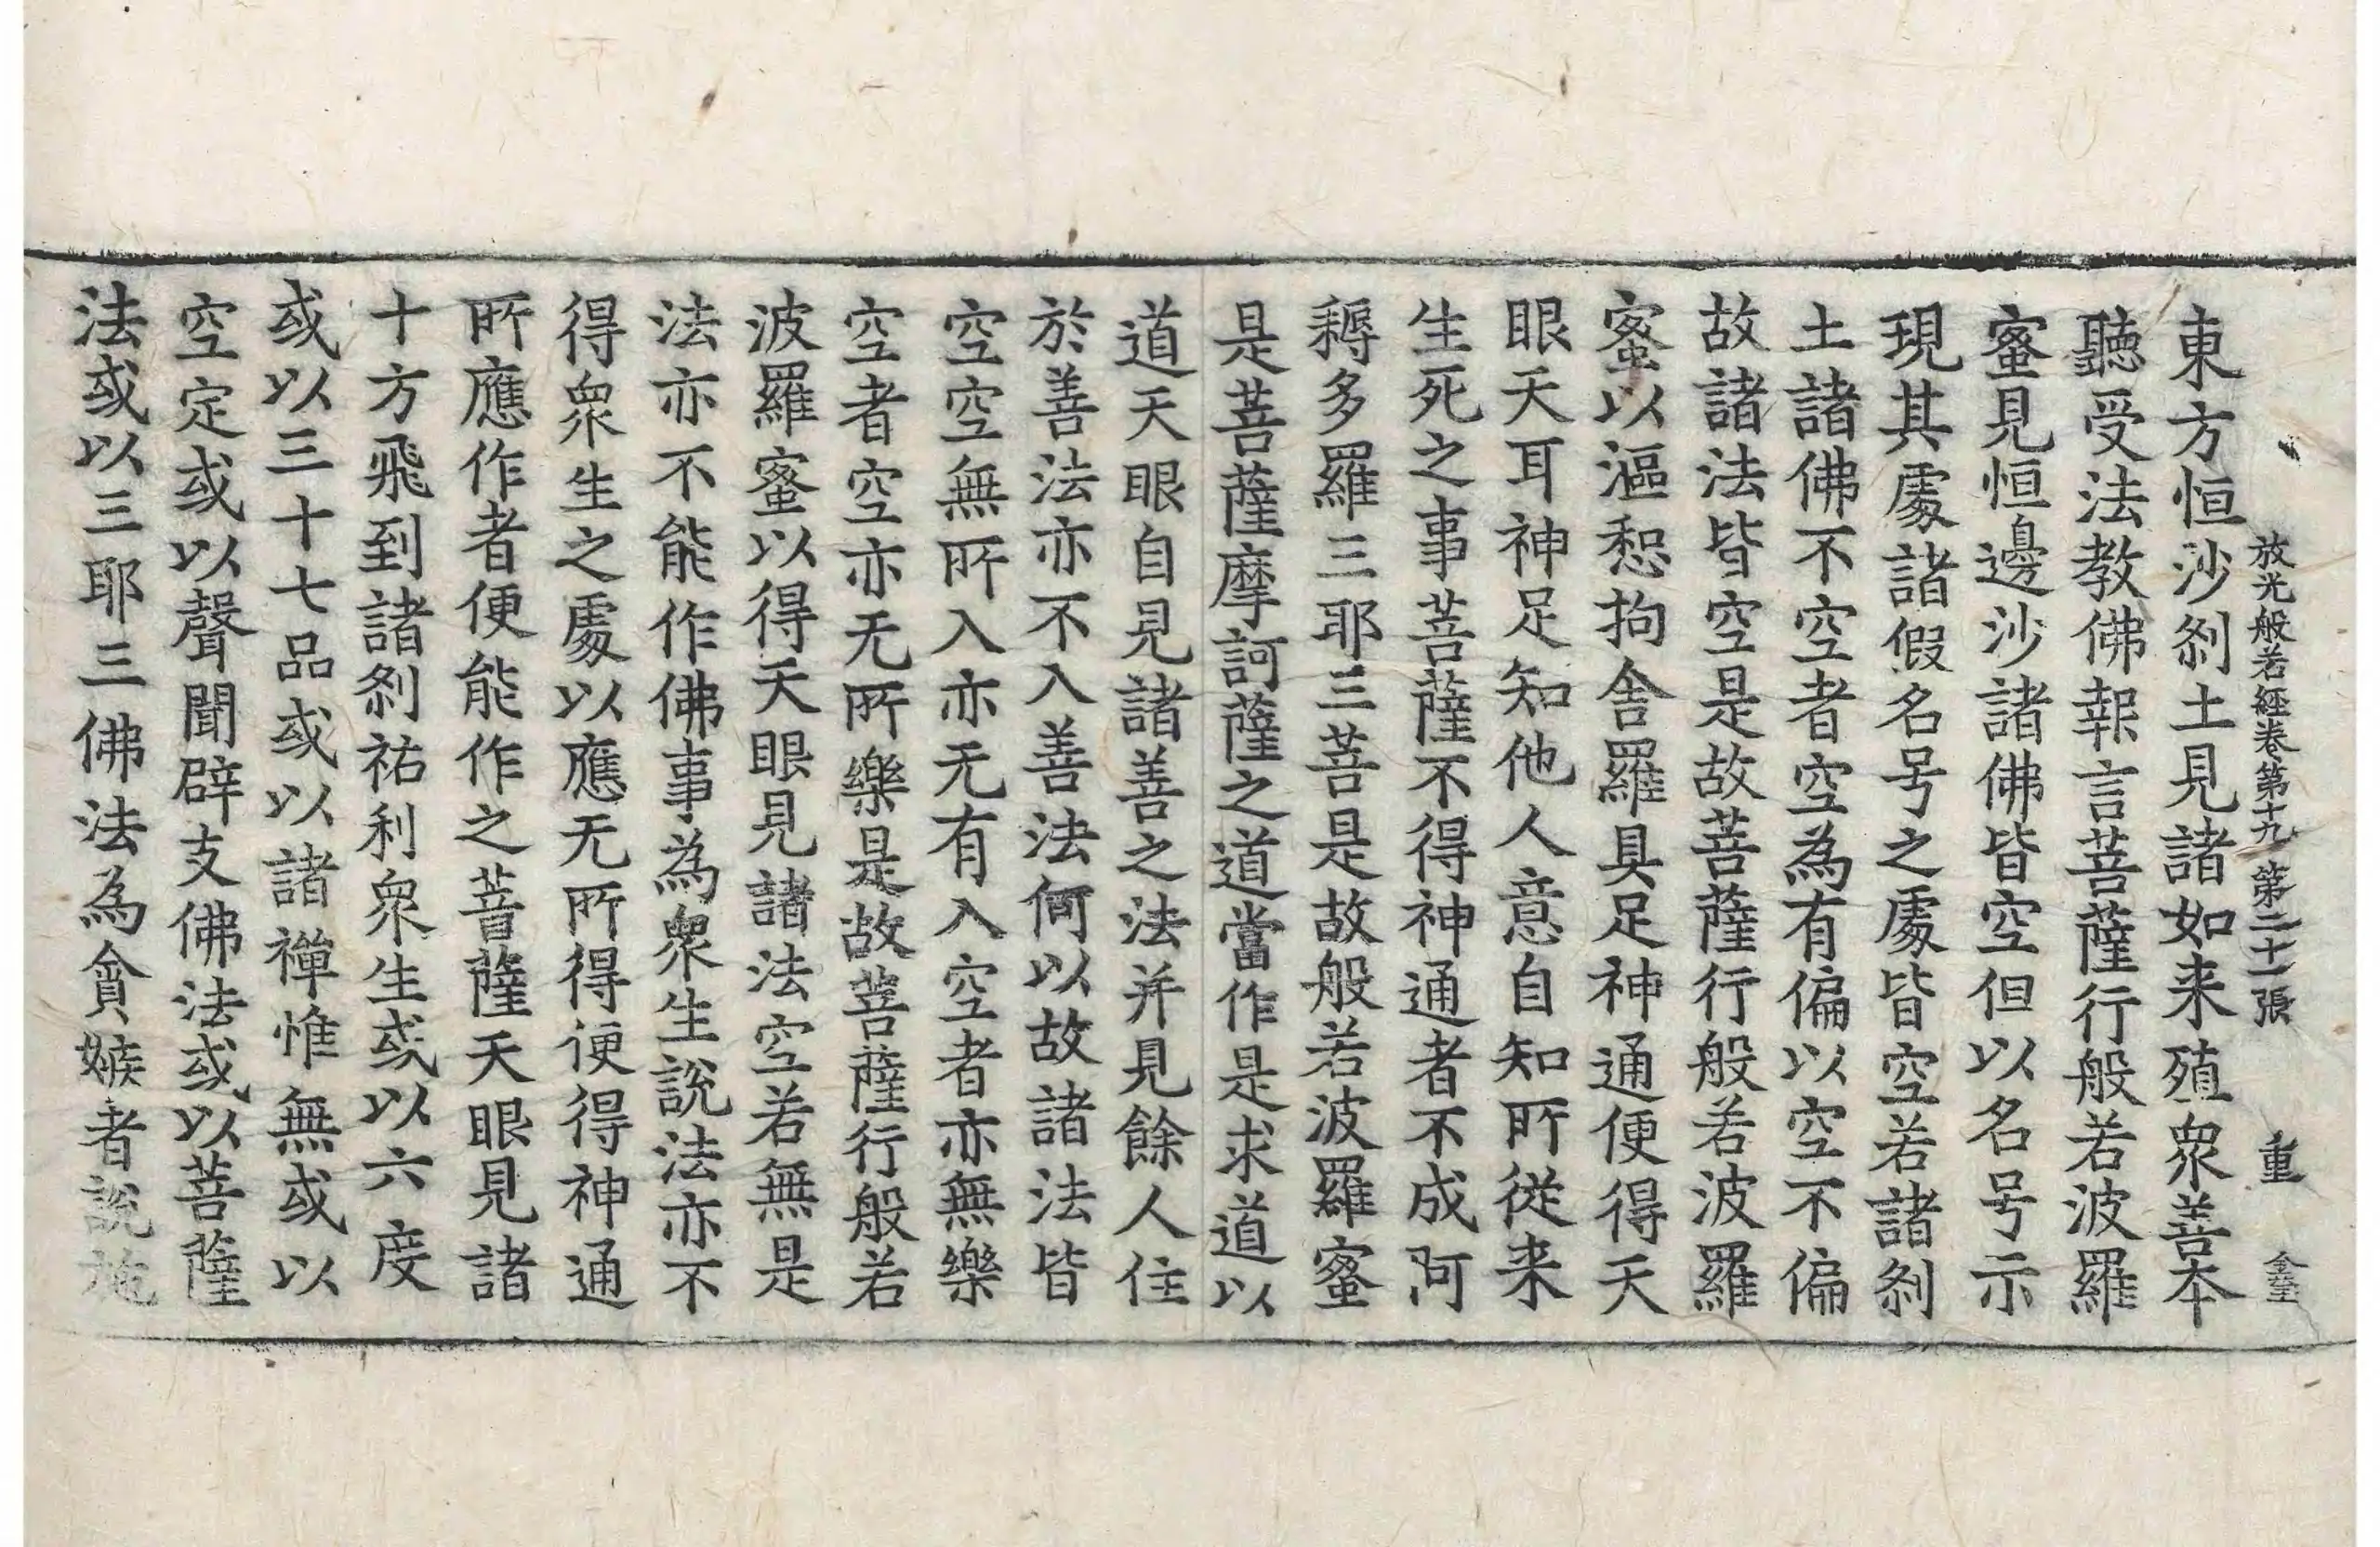 放光般若經卷第十九 第二十一張 重
東方恒沙刹土見諸如来殖衆善本
聽受法教佛報言菩薩行般若波羅
蜜見恒邊沙諸佛皆空但以名号示
現其處諸假名号之處皆空若諸刹
土諸佛不空者空為有偏以空不偏
故諸法皆空是故菩薩行般若波羅
蜜以漚惒拘舍羅具足神通便得天
眼天耳神足知他人意自知所従来
生死之事菩薩不得神通者不成阿
耨多羅三耶三菩是故般若波羅蜜
是菩薩摩訶薩之道當作是求道以
道天眼自見諸善之法并見餘人住
於善法亦不入善法何以故諸法皆
空空無所入亦无有入空者亦無樂
空者空亦无所樂是故菩薩行般若
波羅蜜以得天眼見諸法空若無是
法亦不能作佛事為衆生說法亦不
得衆生之處以應无所得便得神通
所應作者便能作之菩薩天眼見諸
十方飛到諸刹祐利衆生或以六度
或以三十七品或以諸禪惟無或以
空定或以聲聞辟支佛法或以菩薩
法或以三耶三佛法為貪嫉者說施